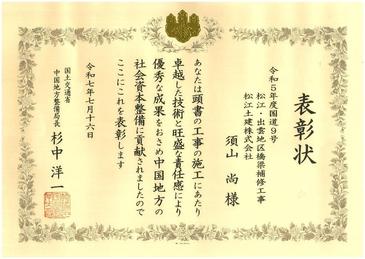 表彰状
令和5年度国道9号
松江・出雲地区橋梁補修工事
松江土建株式会社
須山 尚 様
あなたは頭書の工事の施工にあたり
卓越した技術と旺盛な責任感により
優秀な成果をおさめ中国地方の
社会資本整備に貢献されましたので
ここにこれを表彰します
令和七年七月十六日
国土交通省
中国地方整備局長
杉中 洋一